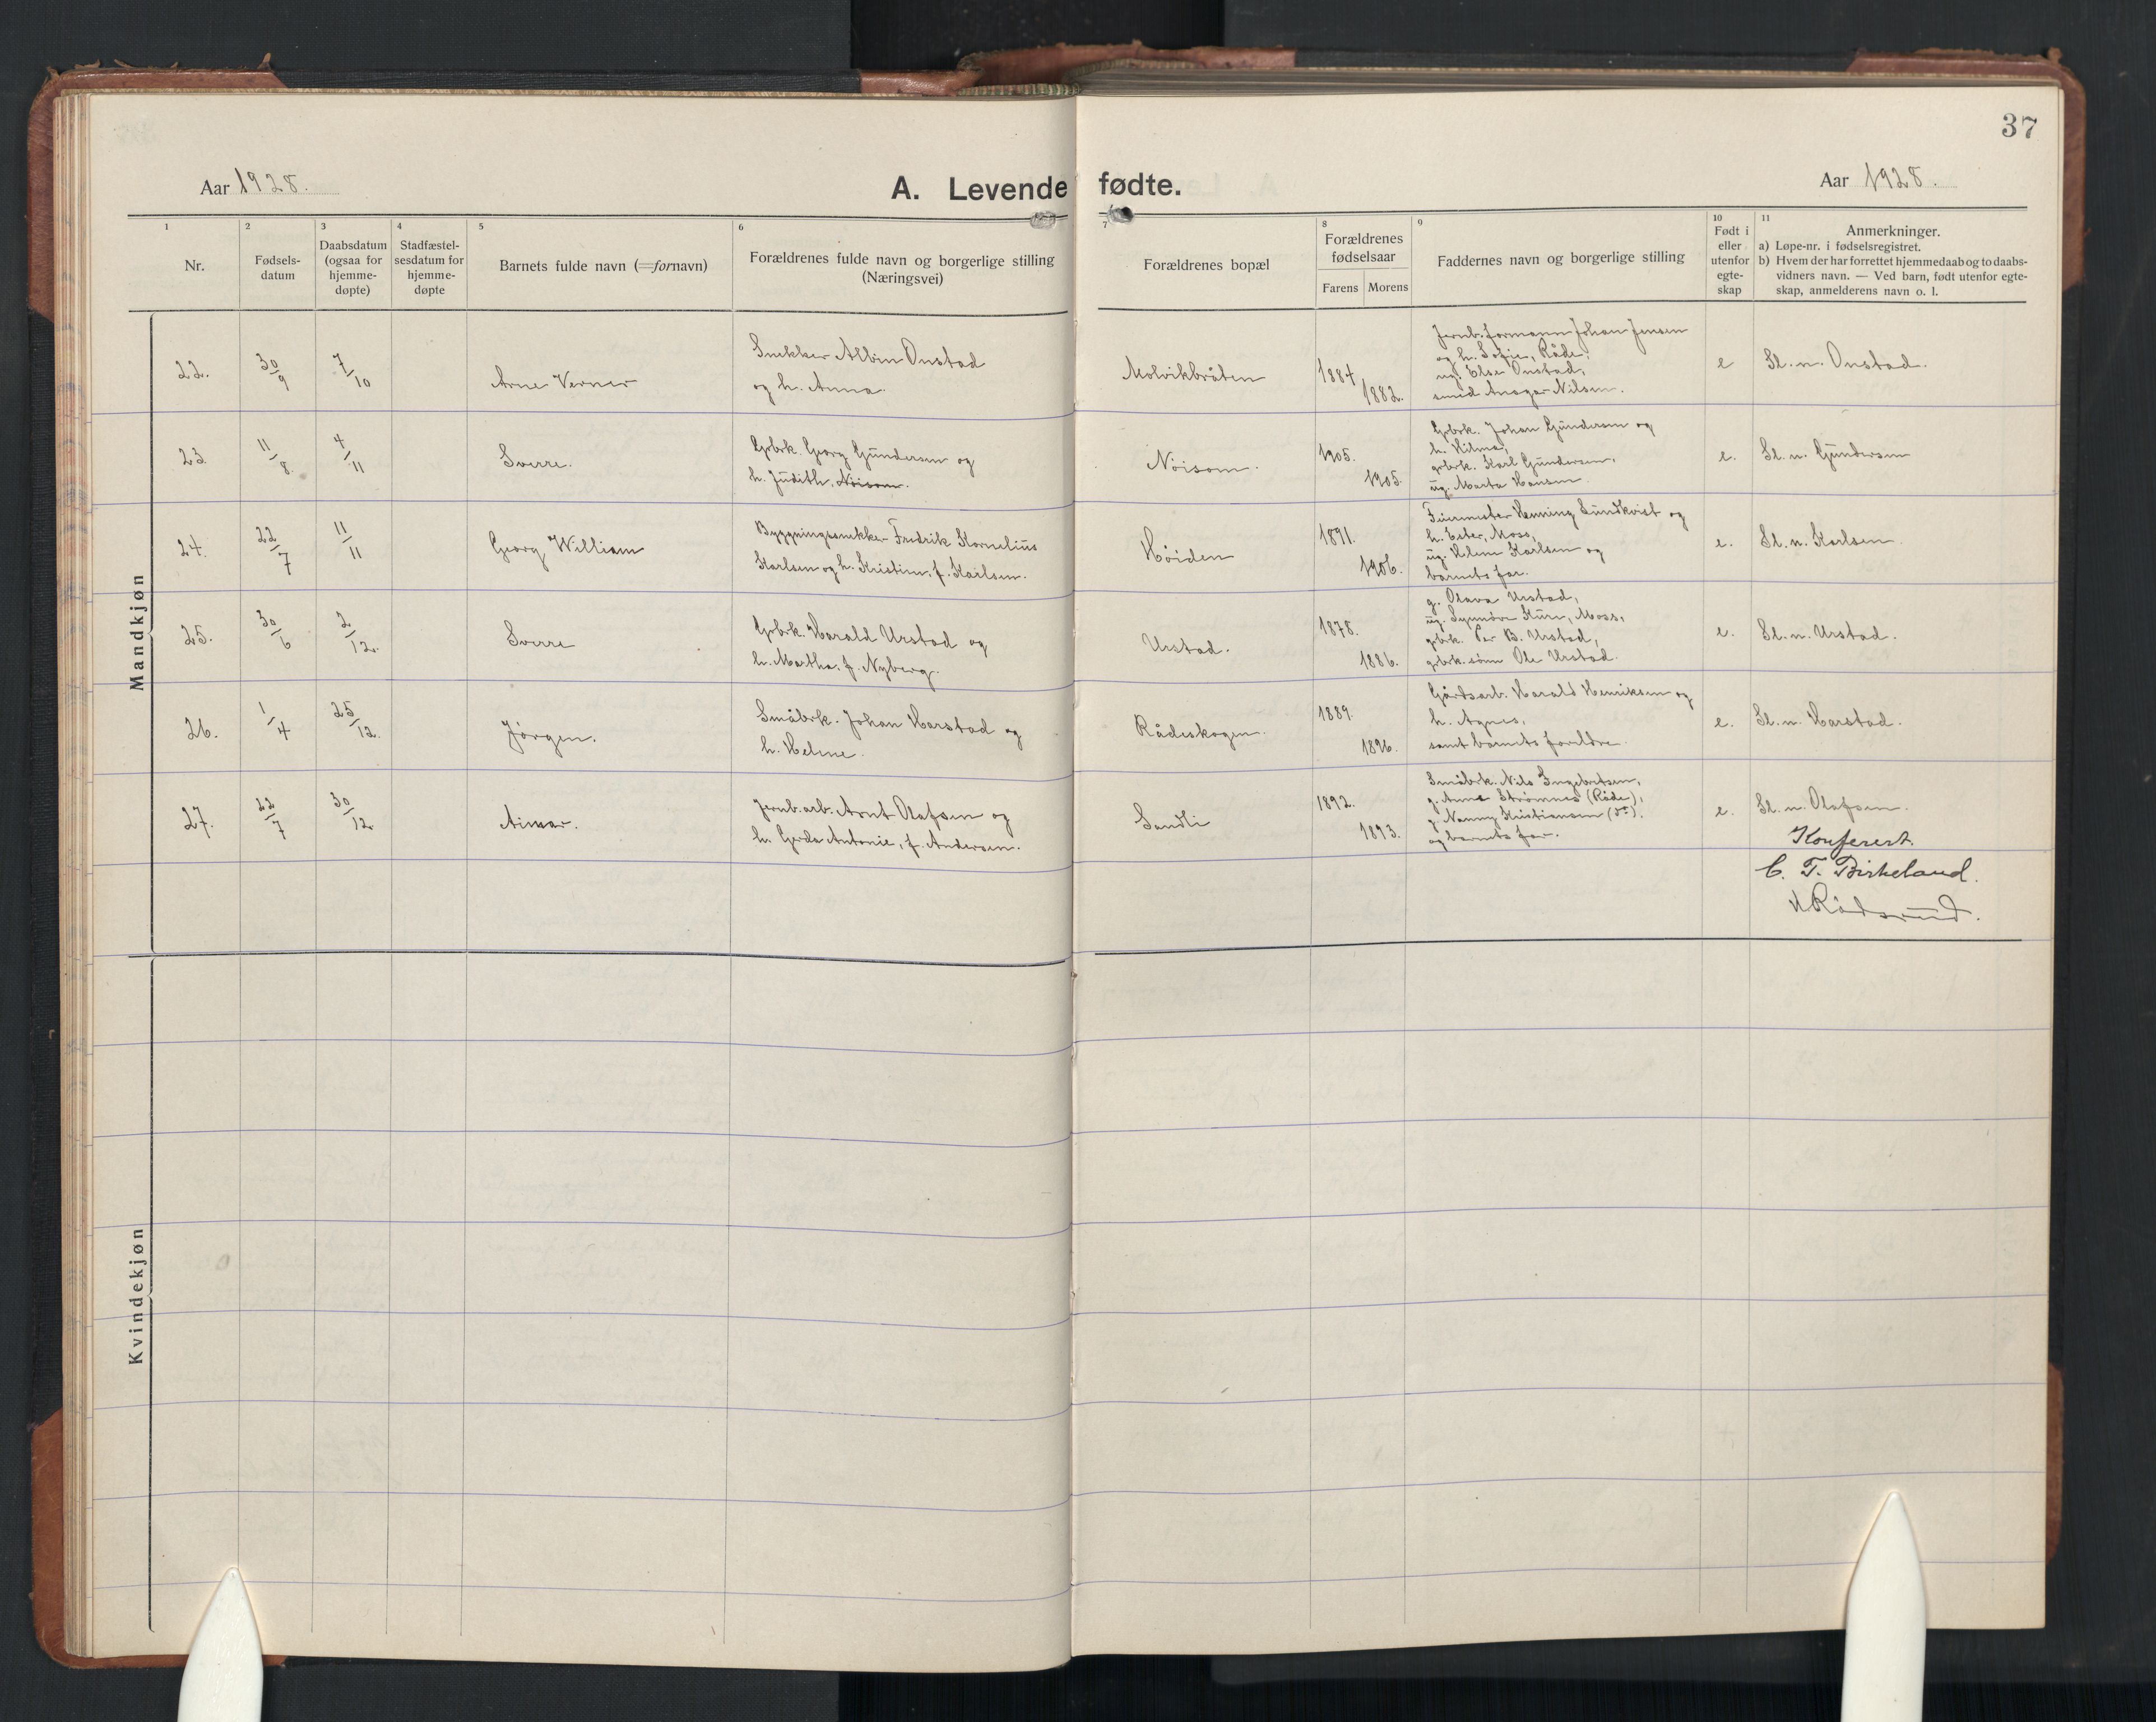 37
Aar 1928.
A. Levende fødte.
Aar 1928.
1 2 3 4 5 6 7 8 9 10 11
Nr.
Fødsels-
datum
Daabsdatum
(ogsaa for
hjemme-
døpte)
Stadfæstel-
sesdatum for
hjemme-
døpte
Barnets fulde navn (=fornavn)
Forældrenes fulde navn og borgerlige stilling
(Næringsvei)
Forældrenes bopæl
Forældrenes
fødselsaar
Farens Morens
Faddernes navn og borgerlige stilling
Født i
eller
utenfor
egte-
skap
Anmerkninger.
a) Løpe-nr. i fødselsregistret.
b) Hvem der har forrettet hjemmedaab og to daabs-
vidners navn. — Ved barn, født utenfor egte-
skap, anmelderens navn o. l.
Mandkjøn
22. 30/9 7/10 Arne Verner
Snekker Albin Onstad
og h. Anna.
Molvikbråten
1884
1882.
Jernb.formann Johan Jensen
og h. Sofie, Råde,
ug. Else Onstad,
smed Ansgar Nilsen.
e Sl. n. Onstad.
23. 11/8 4/11 Sverre.
Grbrk. Georg Gundersen og
h. Judith, Nöisom.
Nöisom.
1905.
1905.
Grbrk. Johan Gundersen og
h. Hilma,
grbrk. Karl Gundersen,
ug. Marta Hansen
e. Sl. n. Gundersen
24. 22/7 11/11 Georg William
Bygningssnekker Fredrik Kornelius
Karlsen og h. Kristine, f. Karlsen.
Höiden
1891.
1906.
Murmester Henning Lundkvist og
h. Ester, Moss,
ug. Helene Karlsen og
barnets far.
e. Sl. n. Karlsen.
25. 30/6 2/12. Sverre
Grbrk. Harald Urstad og
h. Martha, f. Nyberg.
Urstad.
1878.
1886.
g. Olava Urstad,
ug. Synnöve Kure, Moss,
grbrk. Per B. Urstad,
grbrk. sönn Ole Urstad.
e. Sl. n. Urstad.
26. 1/4 25/12. Jörgen.
Småbrk. Johan Harstad og
h. Helene.
Rådeskogen.
1889.
1896.
Gårdsarb. Harald Henriksen og
h. Agnes,
samt barnets foreldre.
e. Sl. n. Harstad.
27. 22/7 30/12. Aimar.
Jernb.arb. Arnt Olafsen og
h. Gerda Antonie, f. Andersen.
Sandli
1892.
1893.
Småbrk. Nils Ingebretsen,
g. Anna Strömnes (Råde),
g. Nanny Kristiansen (do).
og barnets far.
e. Sl. n. Olafsen.
Konferert.
C. T. Birkeland.
Kvindekjøn